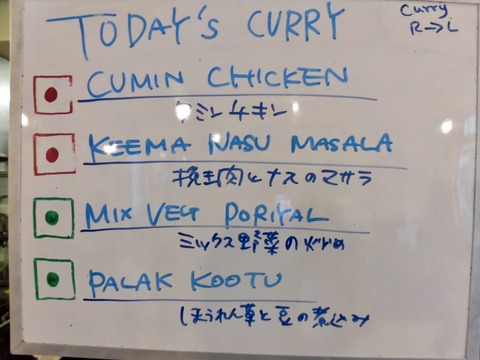 TODAY'S CURRY
Curry
R→L
CUMIN CHICKEN
クミンチキン
KEEMA NASU MASALA
挽肉とナスのマサラ
MIX VEG PORIYAL
ミックス野菜の炒め
PALAK KOOTU
ほうれん草と豆の煮込み